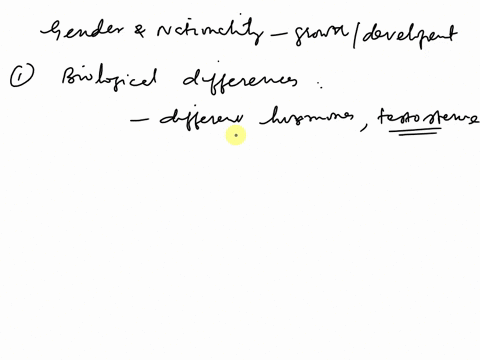 Gender & Nationality - growth/development
① Biological differences :
- different hormones, testosterone